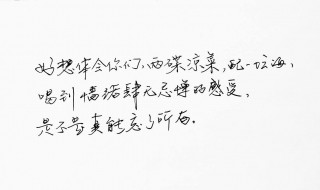 好想体会你们、两碟涼菜,配一坛海,
喝到情绪肆无忌惮的感受,
是不是真能忘了所有。